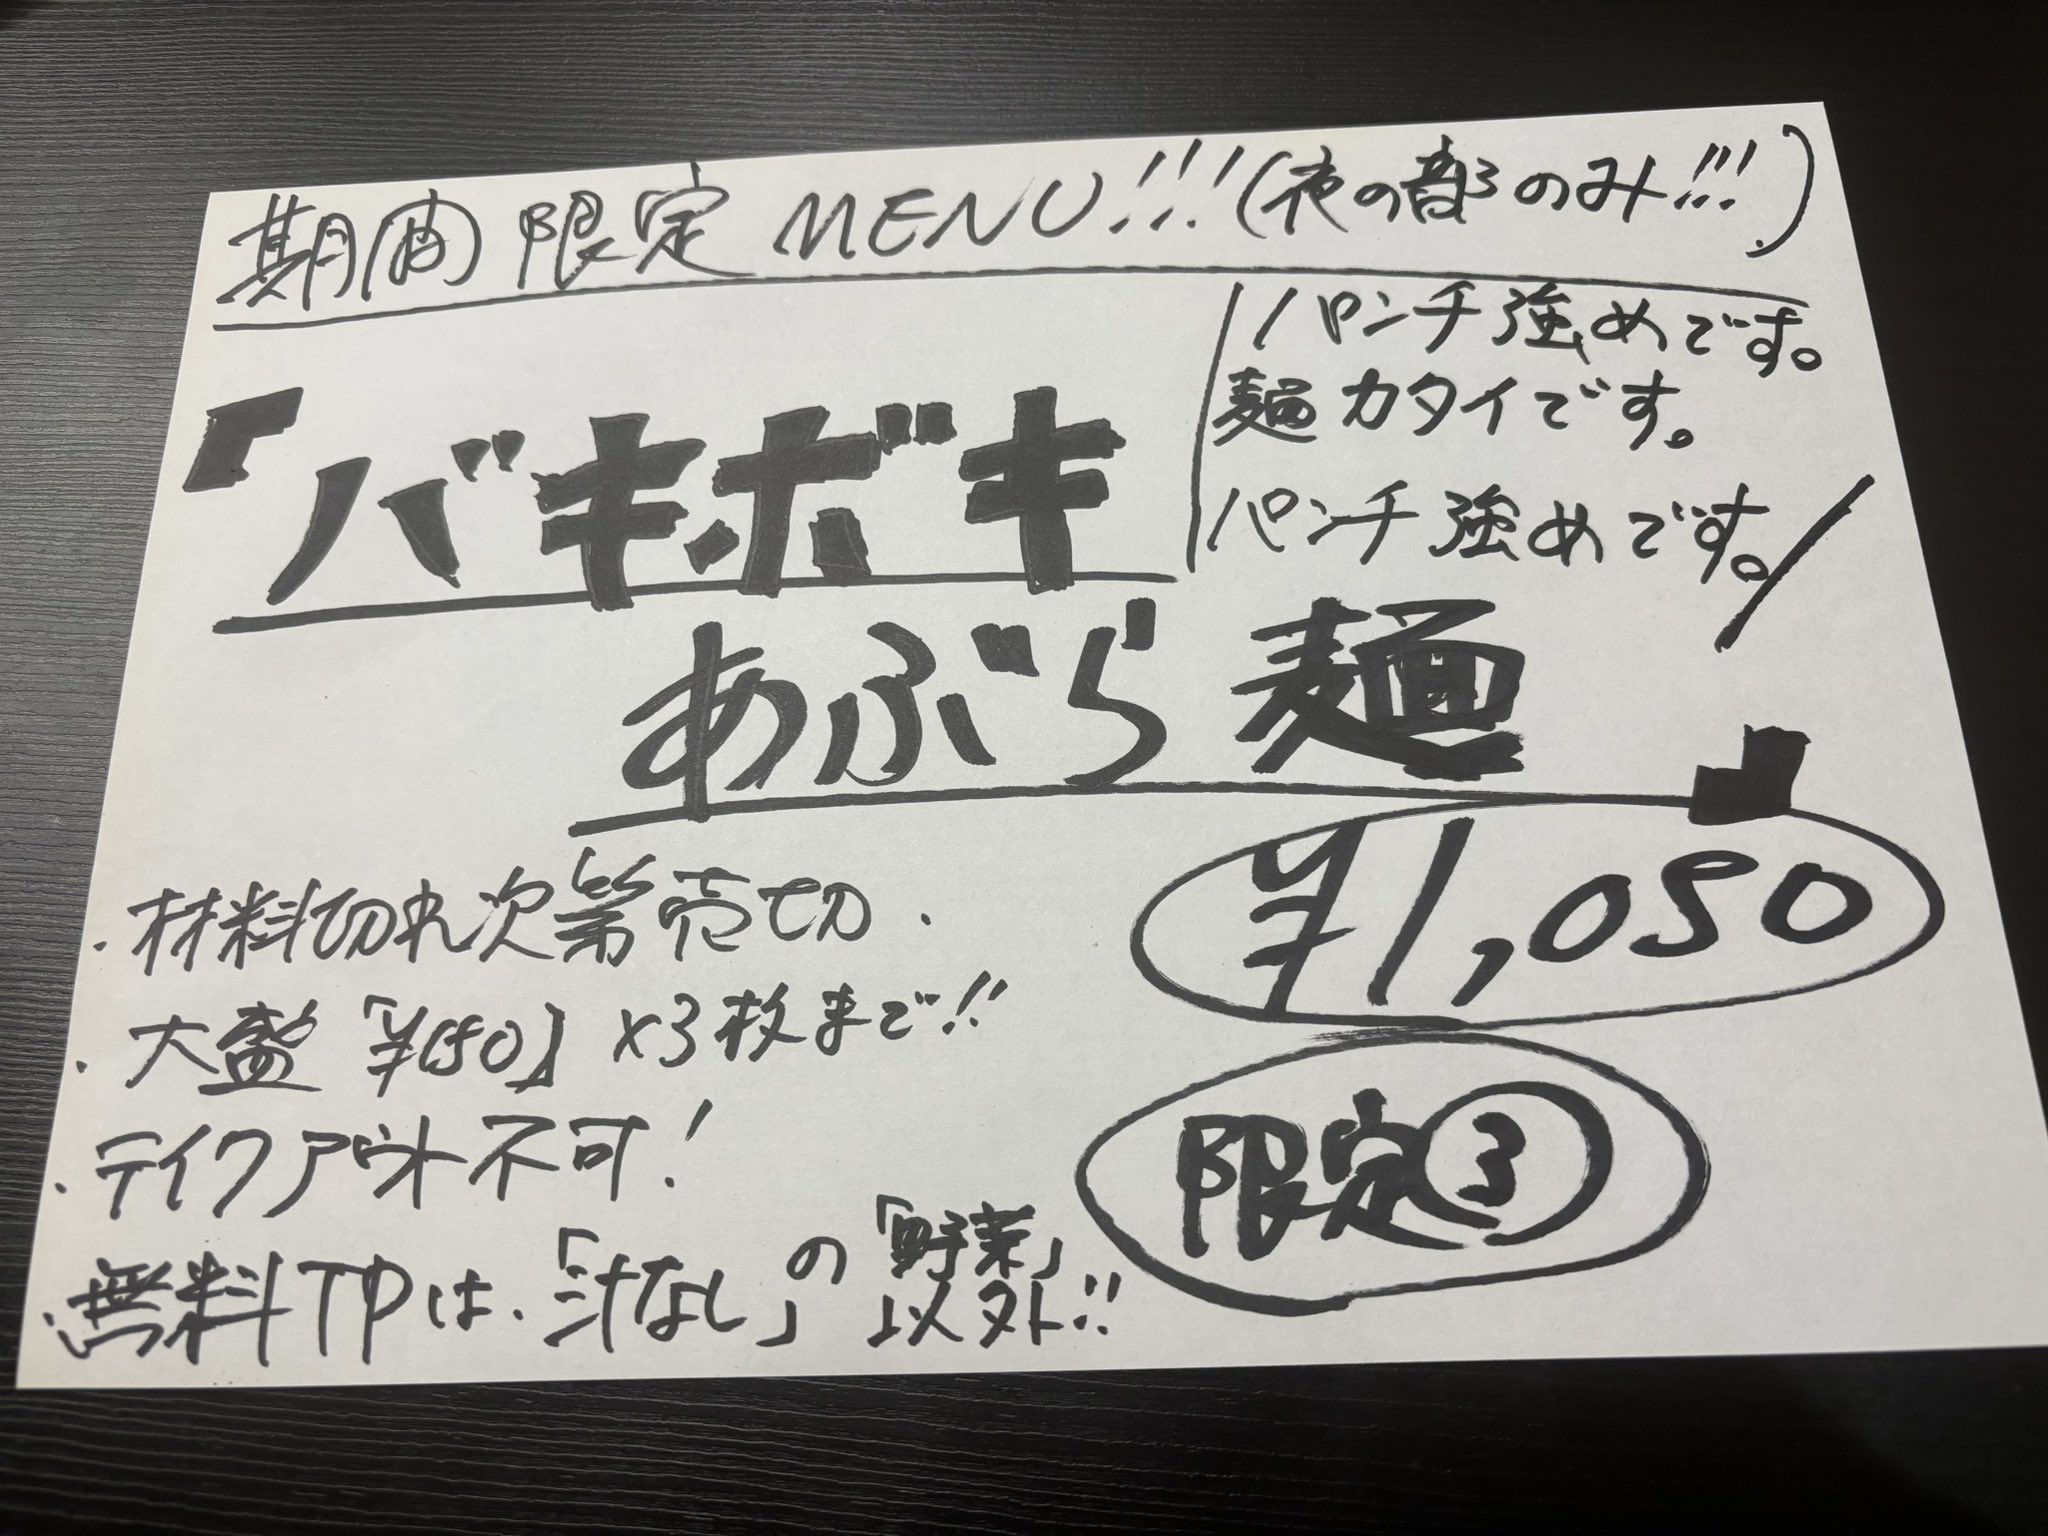 期間限定 MENU!!!(夜の部のみ!!!)
パンチ強めです。
麺カタイです。
パンチ強めです。
「バキボキ
あぶら麺」
¥1,050
限定③
・材料切れ次第売切.
・大盛「¥150」×3枚まで!!
・テイクアウト不可!
・無料TPは、「汁なし」の「野菜」以外!!